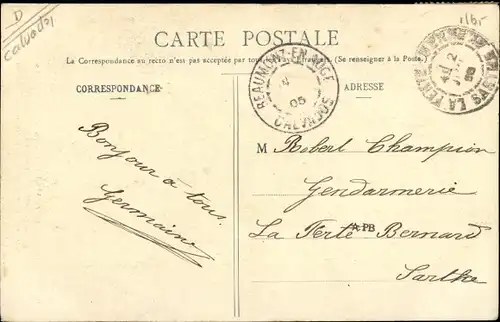 D
Calvados
CARTE POSTALE
La Correspondance au recto n'est pas acceptée par tous les pays étrangers. (Se renseigner à la Poste.)
CORRESPONDANCE
ADRESSE
BEAUMONT-EN-AUGE
05
CALVADOS
Bonjour à tous.
Germaine
M Robert Champion
Gendarmerie
La Ferté Bernard
PB
Sarthe